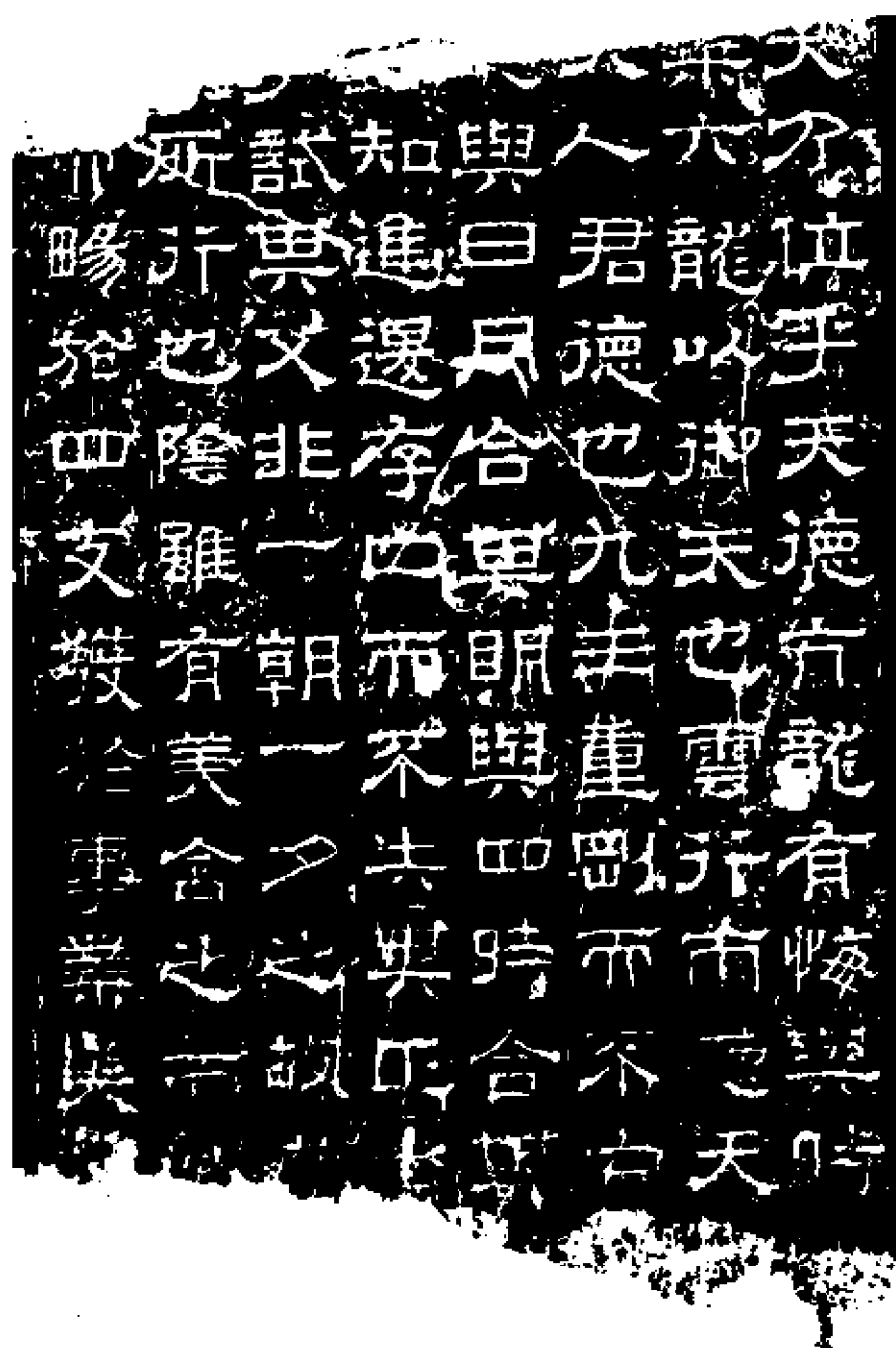 天乃位乎天德亢龍有悔與時
乘六龍以御天也雲行雨施天
大人君德也九三重剛而不中
與日月合其明與四時合其
知進退存亡而不失其正
子試其父非一朝一夕之故
所行也陰雖有美含之以
暢於四支發於事業美